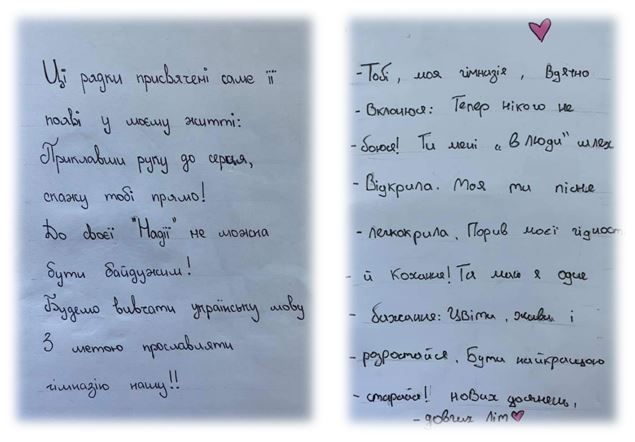 Ці рядки присвячені саме її
появі у моєму житті:
Приклавши руку до серця,
скажу тобі прямо!
До своєї "Надії" не можна
бути байдужим!
Будемо вивчати українську мову
З метою прославляти
гімназію нашу!!
- Тобі, моя гімназія, Вдячно
- Вклонюся: Тепер нікого не
- боюся! Ти мені „в люди" шлях
- Відкрила. Моя ти пісне
- легкокрила. Порив моєї гідност
- й Кохання! Та маю я одне
- бажання: Цвіти, живи і
- розростайся. Бути найкращою
- старайся! нових досягнень,
- довгих літ